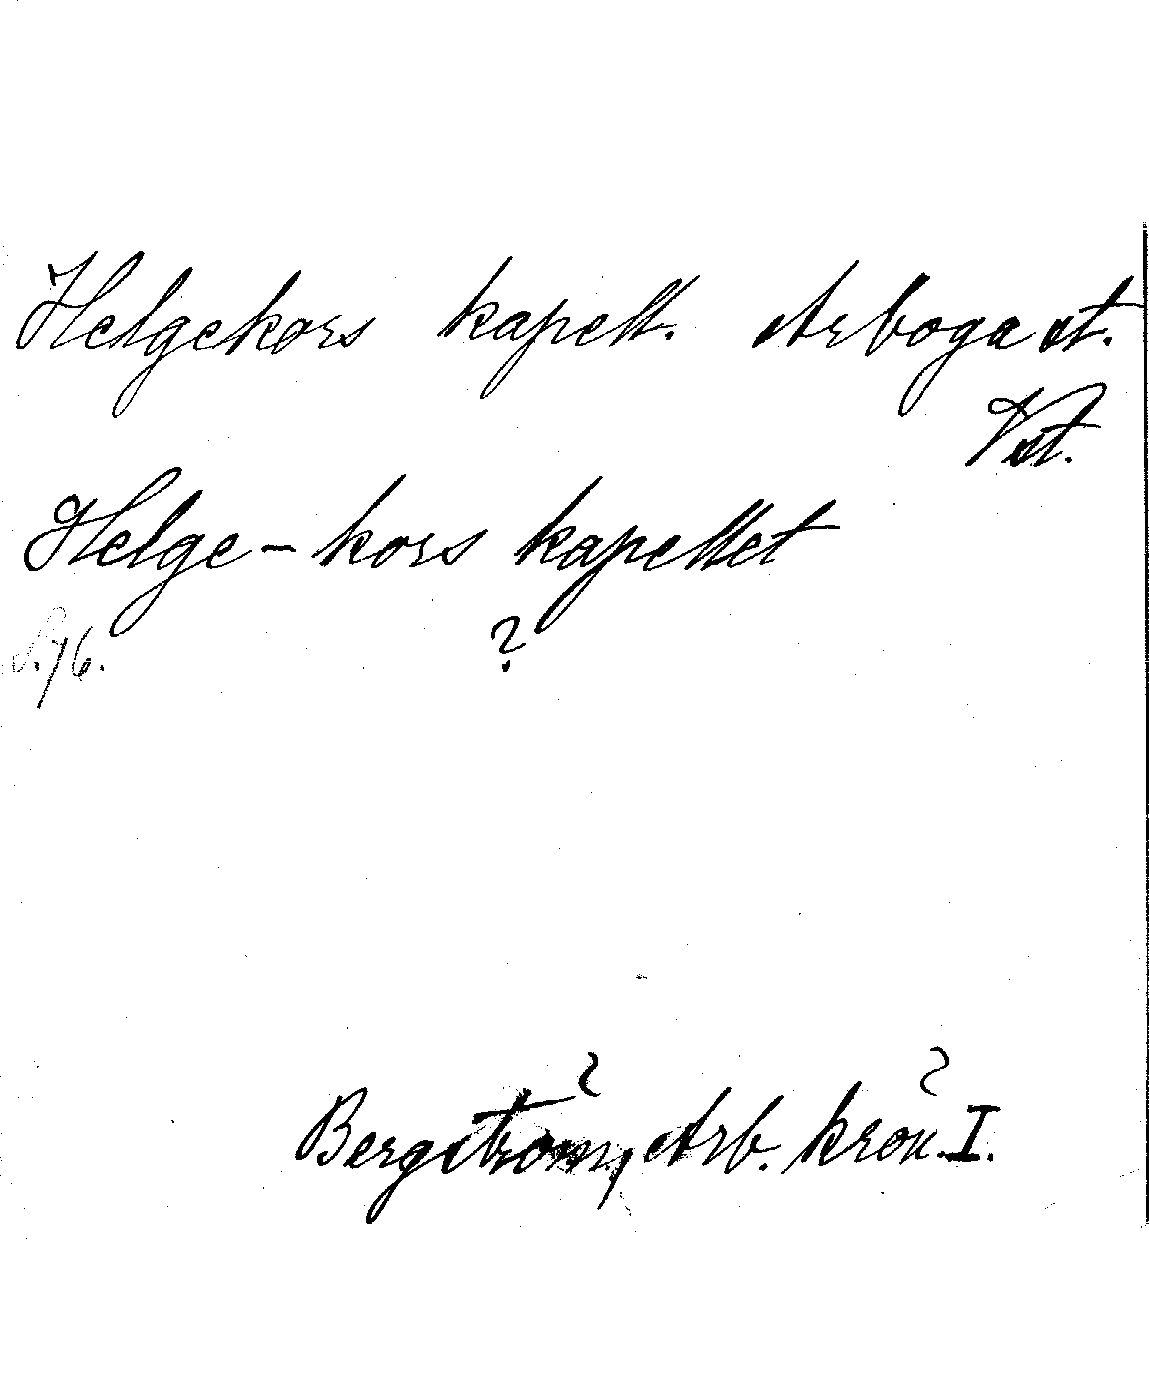 Helgekors kapell. Arboga st.
Vst.
Helge-kors kapellet
S. 76. ?
Bergström, Arb. krön. I.